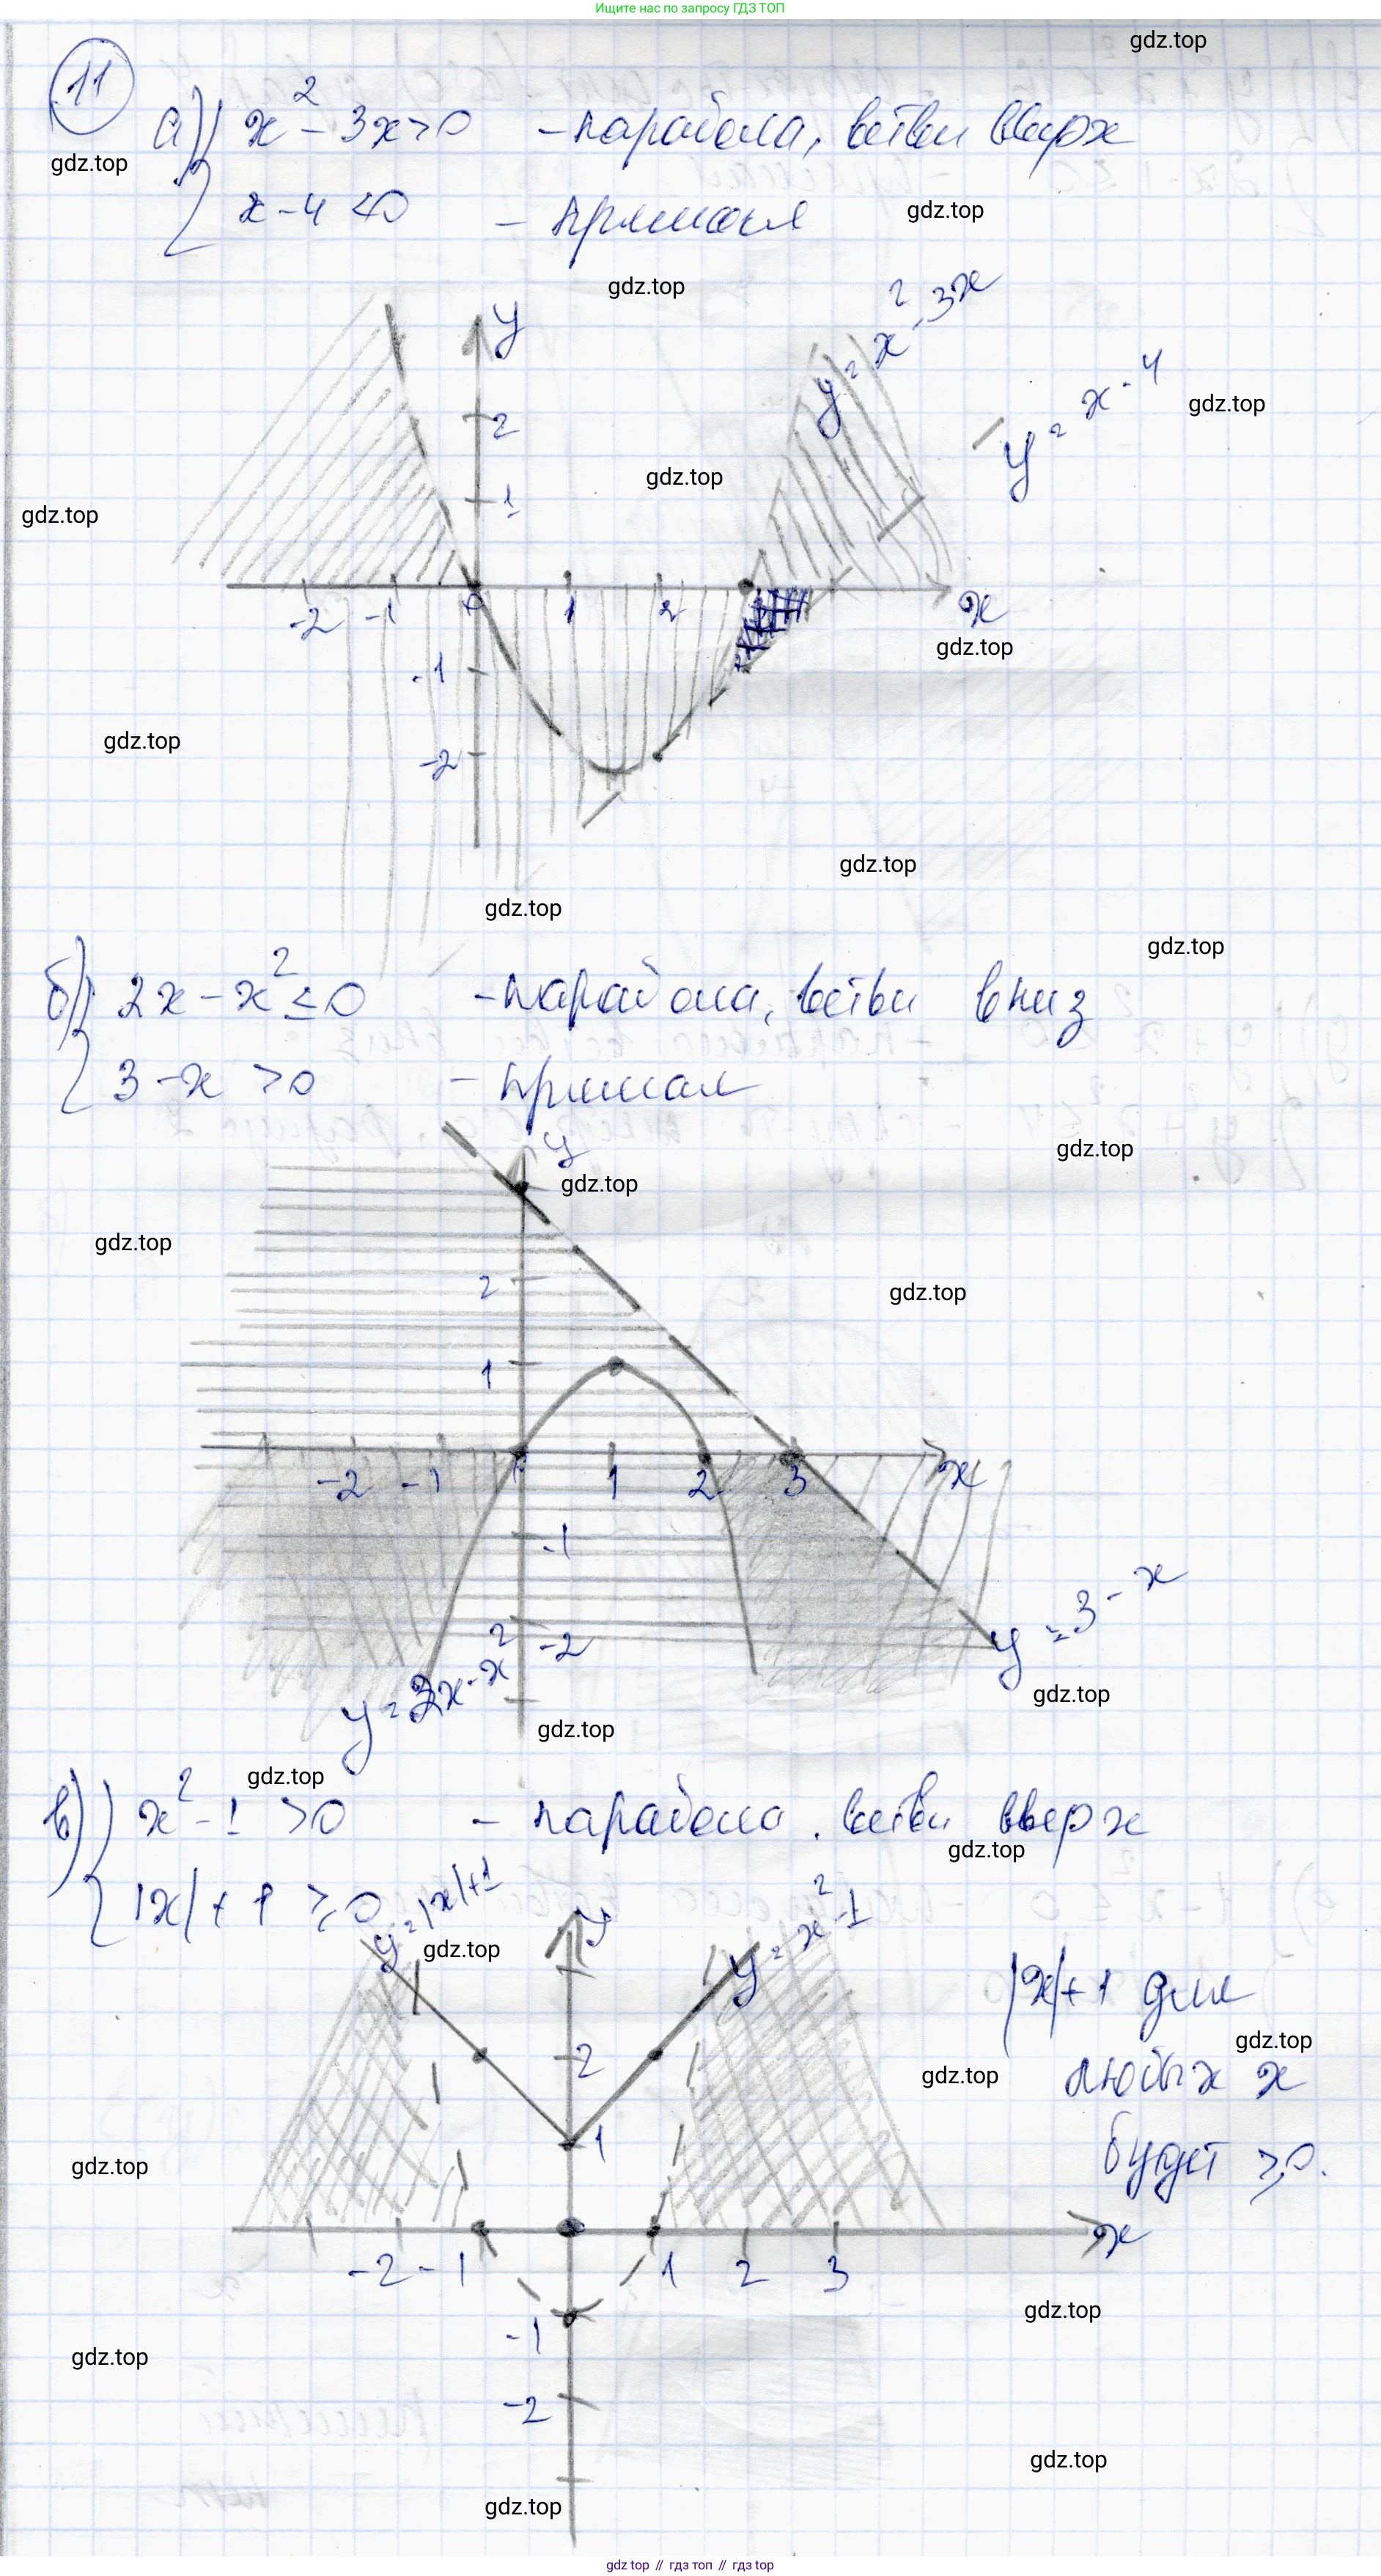 Ищите нас по запросу ГДЗ ТОП
gdz.top
11
gdz.top
а) x² - 3x > 0 - парабола, ветви вверх
x - 4 < 0 - прямая
gdz.top
gdz.top
y
y = x² - 3x
y = x - 4
gdz.top
2
gdz.top
1
gdz.top
-2 -1 0 1 2 x
gdz.top
-1
gdz.top
-2
gdz.top
gdz.top
gdz.top
б) 2x - x² ≤ 0 - парабола, ветви вниз
3 - x > 0 - прямая
gdz.top
y
gdz.top
gdz.top
gdz.top
2
1
-2 -1 0 1 2 3 x
-1
-2
y = 3 - x
y = 2x - x²
gdz.top
gdz.top
gdz.top
в) x² - 1 > 0 - парабола, ветви вверх
gdz.top
|x| + 1 ≥ 0
y = |x| + 1
y
y = x² - 1
gdz.top
|x| + 1 для
gdz.top
любых x
gdz.top
будет ≥ 0.
2
1
gdz.top
-2 -1 1 2 3 x
gdz.top
-1
gdz.top
-2
gdz.top
gdz.top
gdz.top // гдз топ // gdz top